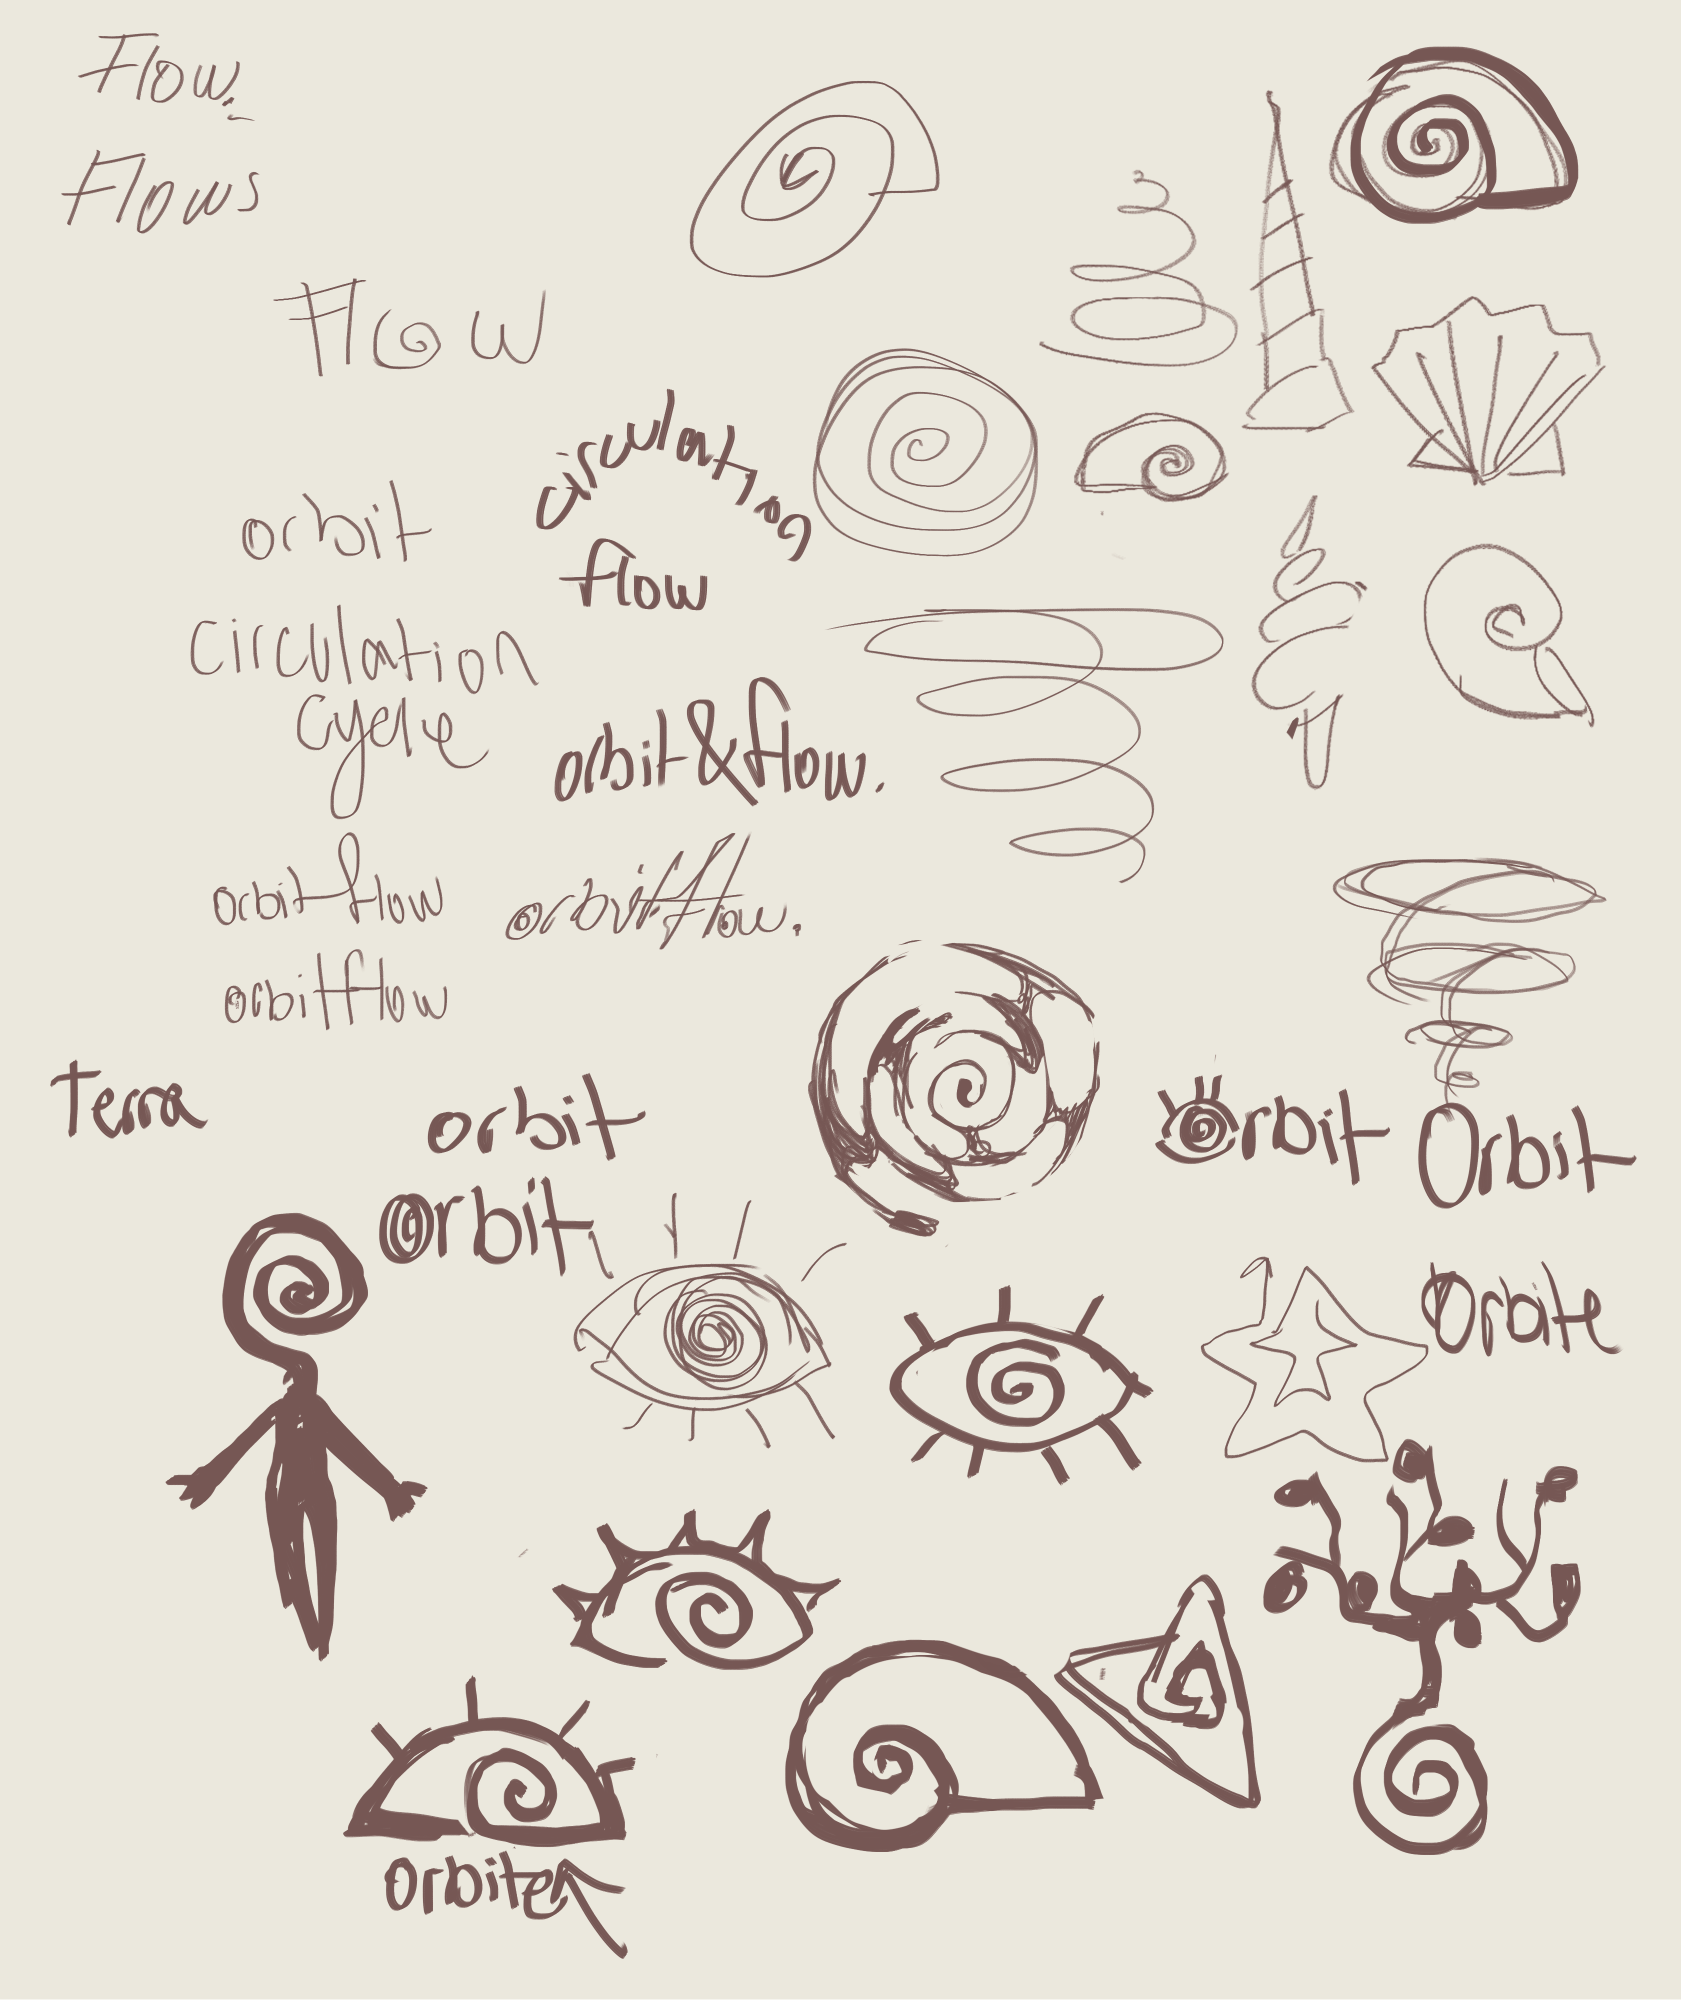 Flow.
Flows
Flow
circulating
flow
orbit
circulation
cycle
orbit&flow.
orbitflow
orbitflow.
orbitflow
Terra
orbit
orbit
Orbit
Orbit
Orbite
Orbite